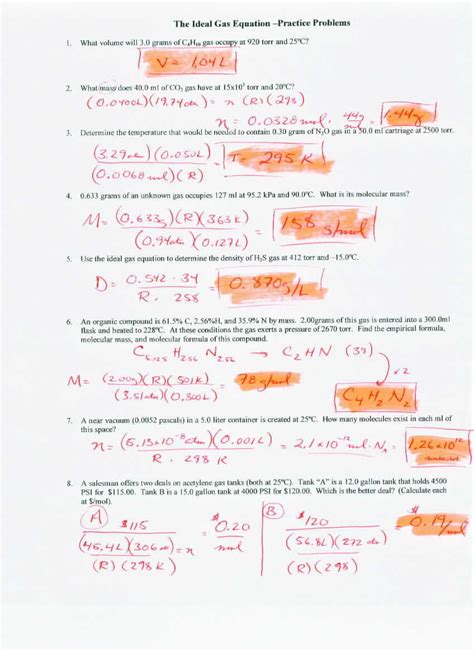 The Ideal Gas Equation –Practice Problems
1. What volume will 3.0 grams of C4H10 gas occupy at 920 torr and 25ºC?
V = 1.04L
2. What mass does 40.0 ml of CO2 gas have at 15x10³ torr and 20ºC?
(0.0400L)(19.74atm) = n (R)(298)
n = 0.0328 mol · 44g = 1.44g
mol
3. Determine the temperature that would be needed to contain 0.30 gram of N2O gas in a 50.0 ml cartriage at 2500 torr.
(3.29atm)(0.050L) = T = 295 K
(0.0068mol)(R)
4. 0.633 grams of an unknown gas occupies 127 ml at 95.2 kPa and 90.0ºC. What is its molecular mass?
M = (0.633g)(R)(363K) = 158 g/mol
(0.94atm)(0.127L)
5. Use the ideal gas equation to determine the density of H2S gas at 412 torr and –15.0ºC.
D = 0.542 · 34 = 0.870g/L
R · 258
6. An organic compound is 61.5% C, 2.56%H, and 35.9% N by mass. 2.00grams of this gas is entered into a 300.0ml
flask and heated to 228ºC. At these conditions the gas exerts a pressure of 2670 torr. Find the empirical formula,
molecular mass, and molecular formula of this compound.
C5.125 H2.56 N2.56 → C2HN (39)
x2
M = (2.00g)(R)(501K) = 78 g/mol
(3.51atm)(0.300L)
C4H2N2
7. A near vacuum (0.0052 pascals) in a 5.0 liter container is created at 25ºC. How many molecules exist in each ml of
this space?
n = (5.13x10⁻⁸atm)(0.001L) = 2.1x10⁻¹² mol·NA = 1.26x10¹²
R · 298 K
8. A salesman offers two deals on acetylene gas tanks (both at 25ºC). Tank “A” is a 12.0 gallon tank that holds 4500
PSI for $115.00. Tank B is a 15.0 gallon tank at 4000 PSI for $120.00. Which is the better deal? (Calculate each
at $/mol).
A $115 = $0.20
(45.4L)(306atm) = n mol
(R)(298K)
B $120 = $0.19/mol
(56.8L)(272atm)
(R)(298)